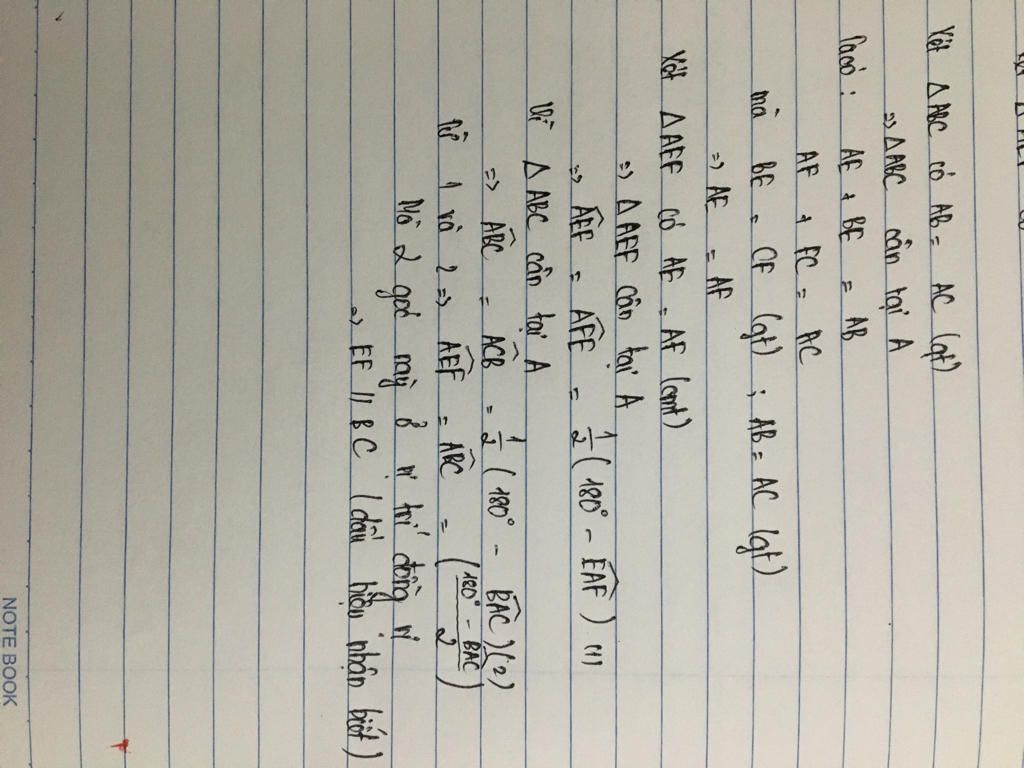 Xét △ABC có AB = AC (gt)
=> △ABC cân tại A
Ta có : AE + BE = AB
AF + FC = AC
mà BE = CF (gt) ; AB = AC (gt)
=> AE = AF
Xét △AEF có AE = AF (cmt)
=> △AEF cân tại A
=> \widehat{AEF} = \widehat{AFE} = \frac{1}{2} (180° - \widehat{EAF}) (1)
Vì △ABC cân tại A
=> \widehat{ABC} = \widehat{ACB} = \frac{1}{2} (180° - \widehat{BAC}) (2)
Từ 1 và 2 => \widehat{AEF} = \widehat{ABC} = (\frac{180° - BAC}{2})
Mà 2 góc này ở vị trí đồng vị
=> EF // BC (dấu hiệu nhận biết)
NOTE BOOK